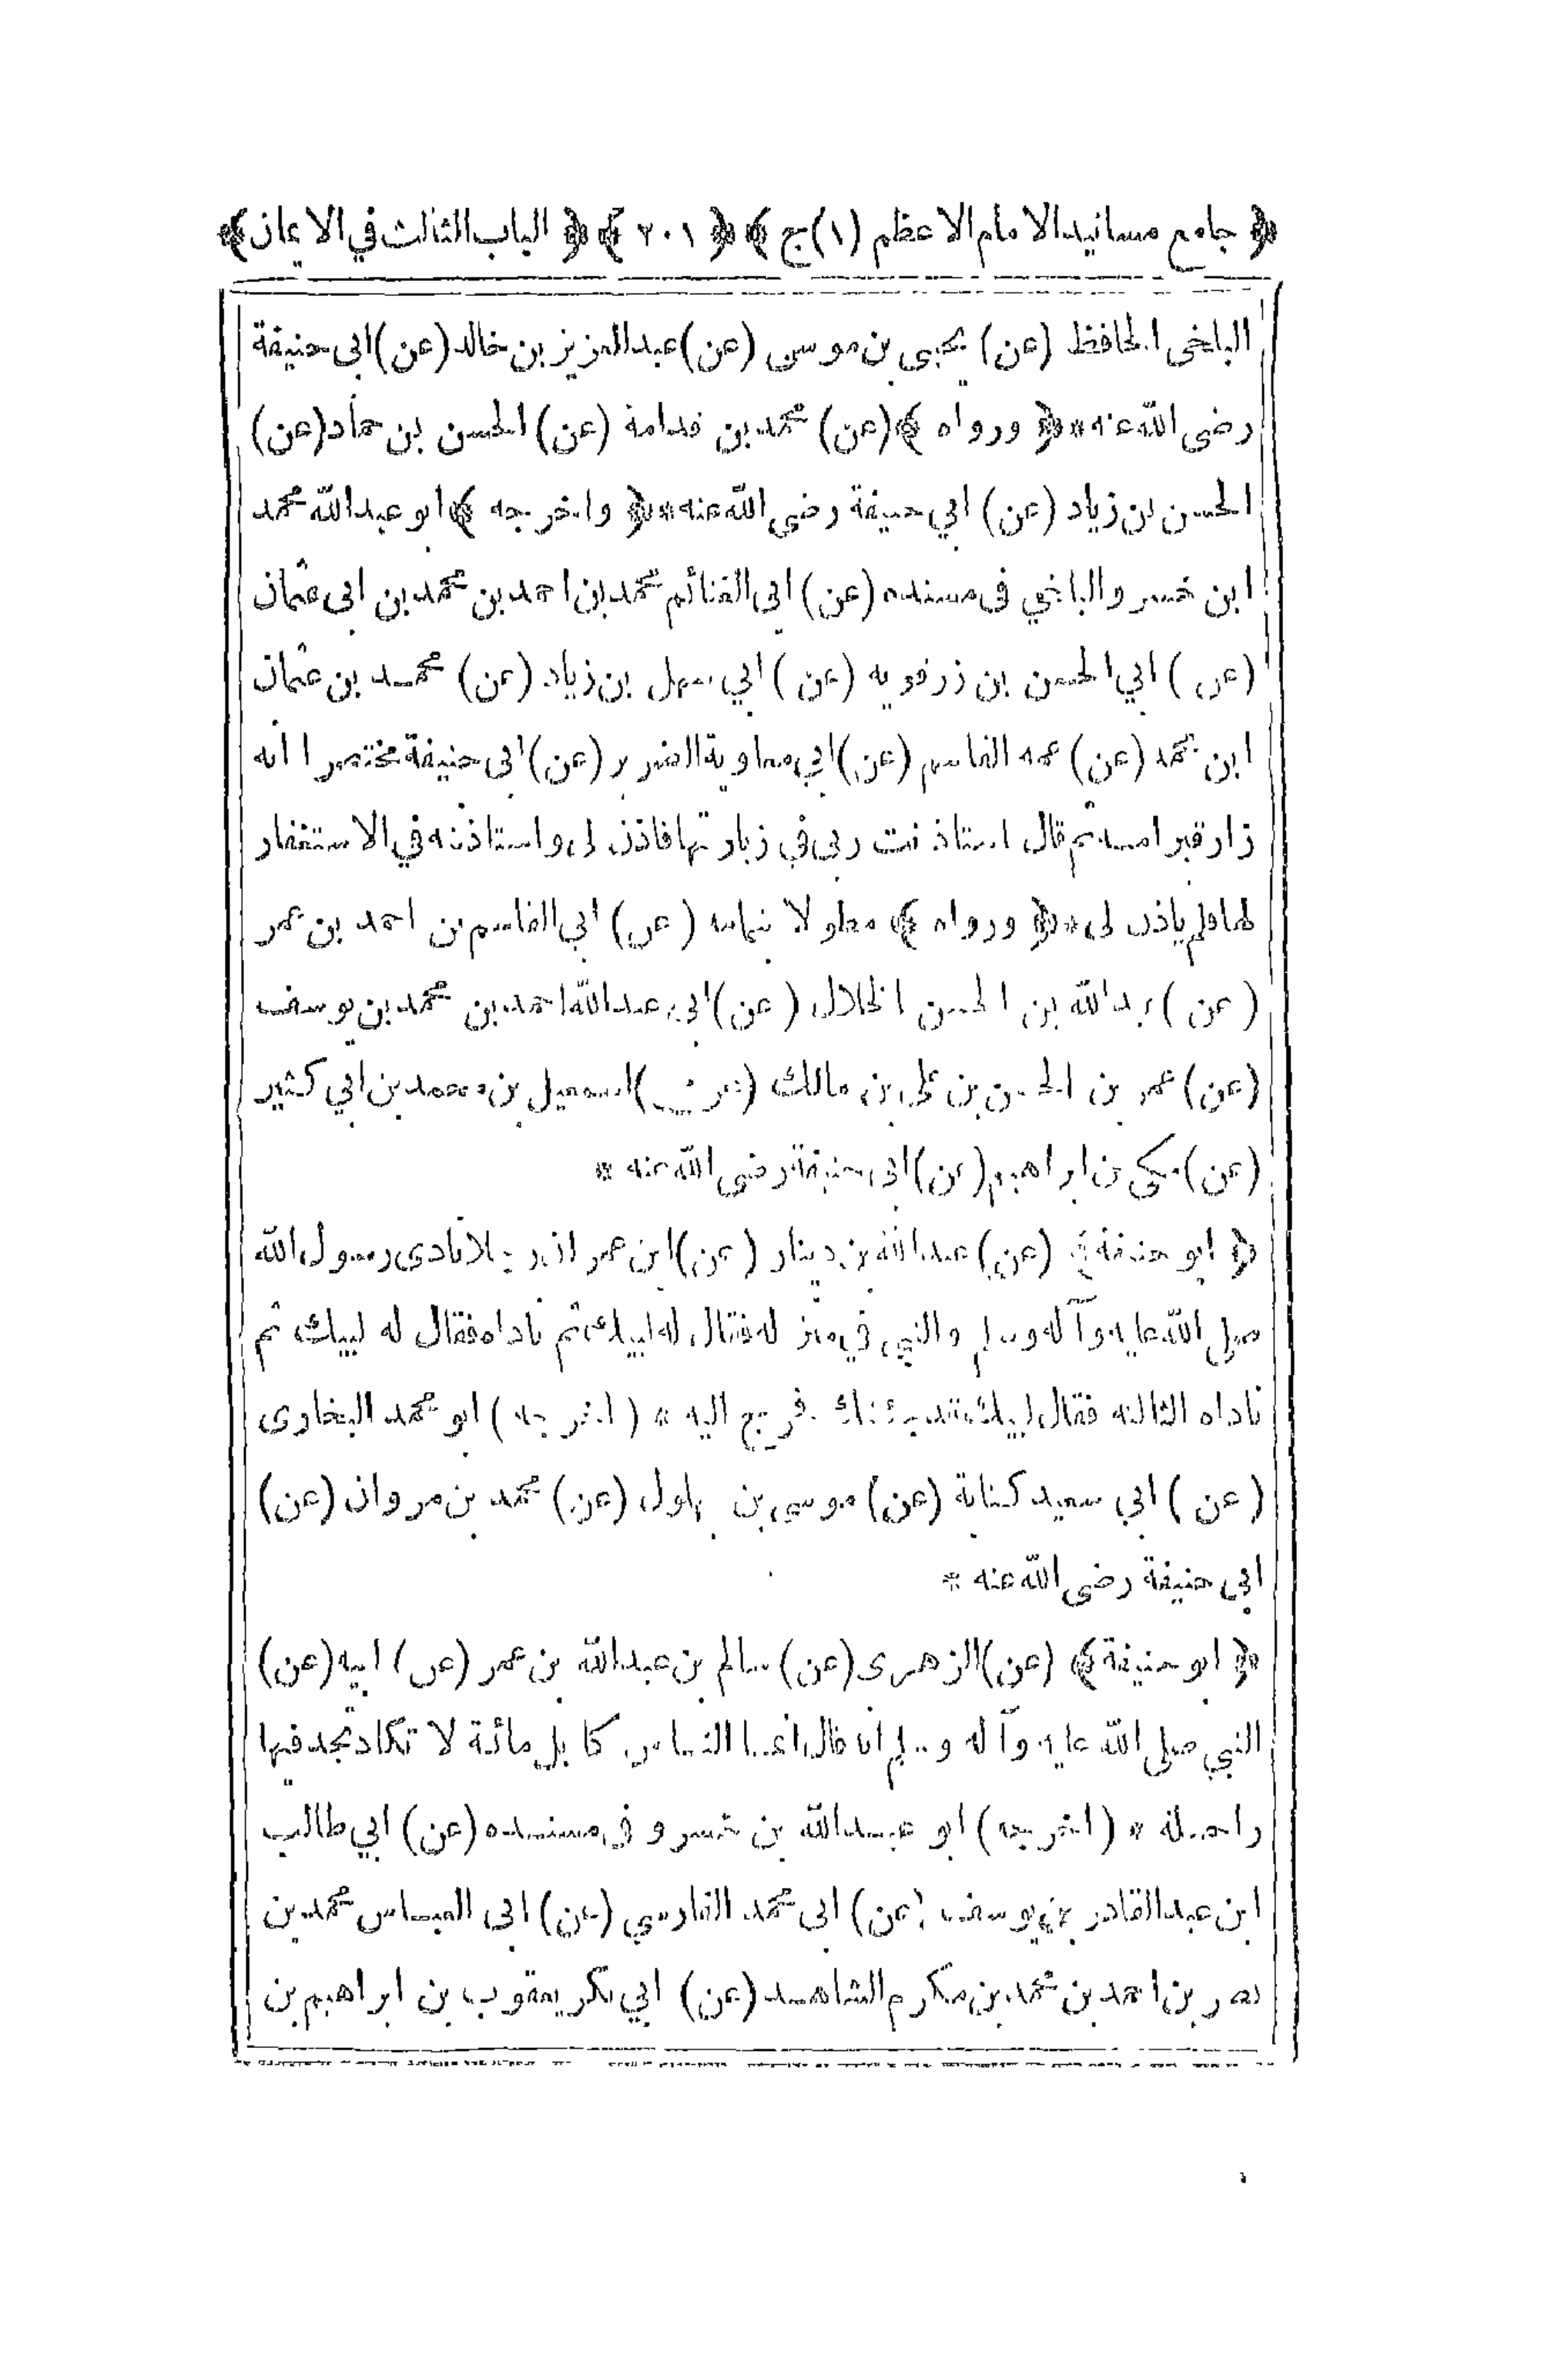 ﴿ جامع مسانيد الامام الاعظم (١) ج ﴾ ﴿ ٢٠١ ﴾ ﴿ الباب الثالث في الايمان ﴾
البلخى الحافظ (عن) يحيى بن موسى (عن) عبد العزيز بن خالد (عن) ابى حنيفة
رضى الله عنه * ﴿ ورواه ﴾ (عن) محمد بن قدامة (عن) الحسن بن حماد (عن)
الحسن بن زياد (عن) ابي حنيفة رضى الله عنه * ﴿ واخرجه ﴾ ابو عبد الله محمد
ابن خسرو البلخي فى مسنده (عن) ابى الغنائم محمد بن احمد بن محمد بن ابى عثمان
(عن) ابي الحسن بن زرقويه (عن) ابي سهل بن زياد (عن) محمد بن عثمان
ابن محمد (عن) عمه القاسم (عن) ابي معاوية الضرير (عن) ابى حنيفة مختصرا انه
زار قبر امه ثم قال استاذنت ربى في زيارتها فاذن لى واستاذنته في الاستغفار
لها فلم ياذن لى * ﴿ ورواه ﴾ مطولا بتمامه (عن) ابي القاسم بن احمد بن عمر
(عن) عبد الله بن الحسن الخلال (عن) ابى عبد الله احمد بن محمد بن يوسف
(عن) عمر بن الحسن بن على بن مالك (عن) اسمعيل بن محمد بن ابي كثير
(عن) مكى بن ابراهيم (عن) ابى حنيفة رضى الله عنه *
﴿ ابو حنيفة ﴾ (عن) عبد الله بن دينار (عن) ابن عمر ان رجلا نادى رسول الله
صلى الله عليه وآله وسلم والنبي في منزله فقال له لبيك ثم ناداه فقال له لبيك ثم
ناداه الثالثه فقال لبيك قد جئتك فخرج اليه * (اخرجه) ابو محمد البخارى
(عن) ابي سعيد كتابة (عن) موسى بن بهلول (عن) محمد بن مروان (عن)
ابي حنيفة رضى الله عنه *
﴿ ابو حنيفة ﴾ (عن) الزهرى (عن) سالم بن عبد الله بن عمر (عن) ابيه (عن)
النبي صلى الله عليه وآله وسلم انه قال انما الناس كابل مائة لا تكاد تجد فيها
راحلة * (اخرجه) ابو عبد الله بن خسرو فى مسنده (عن) ابي طالب
ابن عبد القادر بن يوسف (عن) ابى محمد الفارسي (عن) ابى العباس محمد بن
نصر بن احمد بن محمد بن مكرم الشاهد (عن) ابي بكر يعقوب بن ابراهيم بن